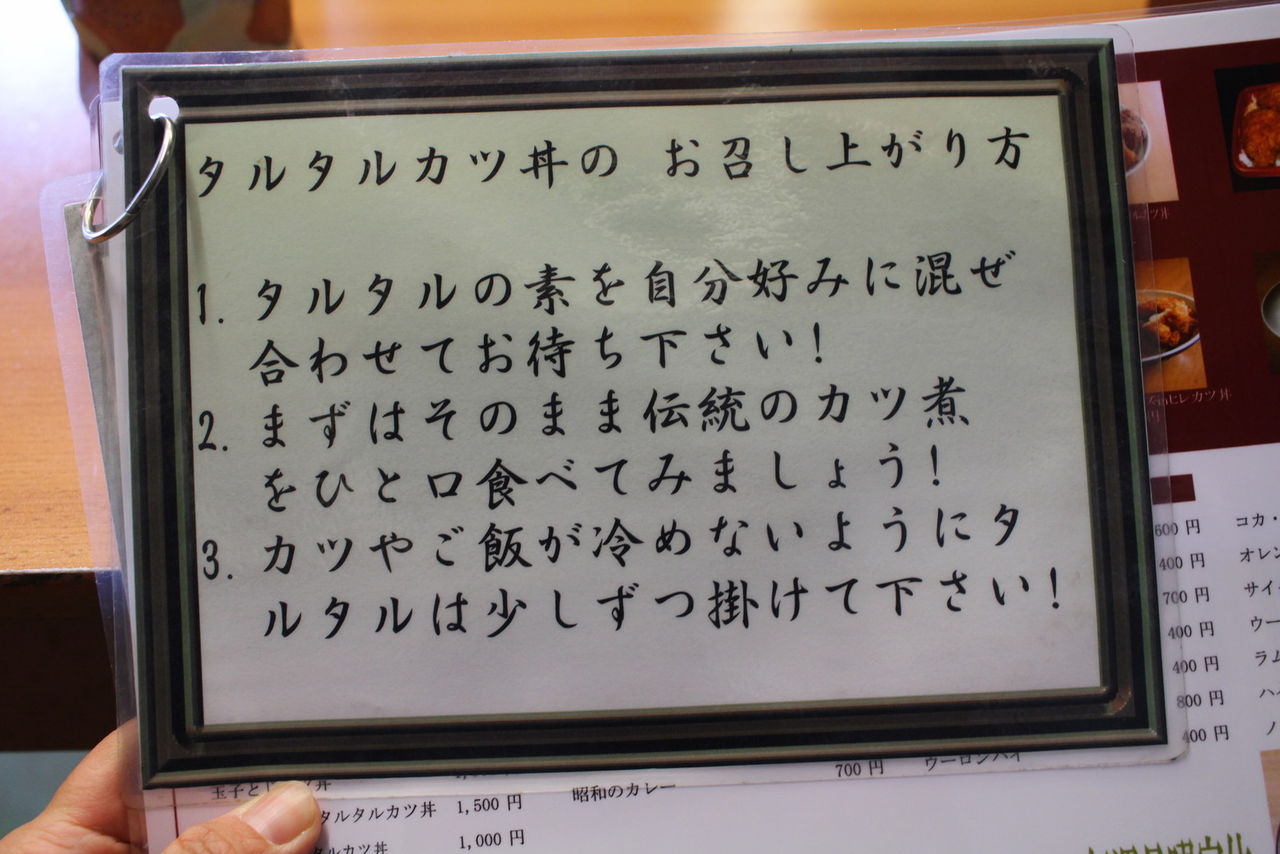 タルタルカツ丼の お召し上がり方
1. タルタルの素を自分好みに混ぜ
合わせてお待ち下さい!
2. まずはそのまま伝統のカツ煮
をひと口食べてみましょう!
3. カツやご飯が冷めないようにタ
ルタルは少しずつ掛けて下さい!
ヒレカツ丼
600 円 コカ・
400 円 オレン
700 円 サイ
400 円 ウー
400 円 ラム
800 円 ハイ
400 円 ノ
700 円 ウーロンハイ
タルタルカツ丼 1,500 円 昭和のカレー
タルカツ丼 1,000 円